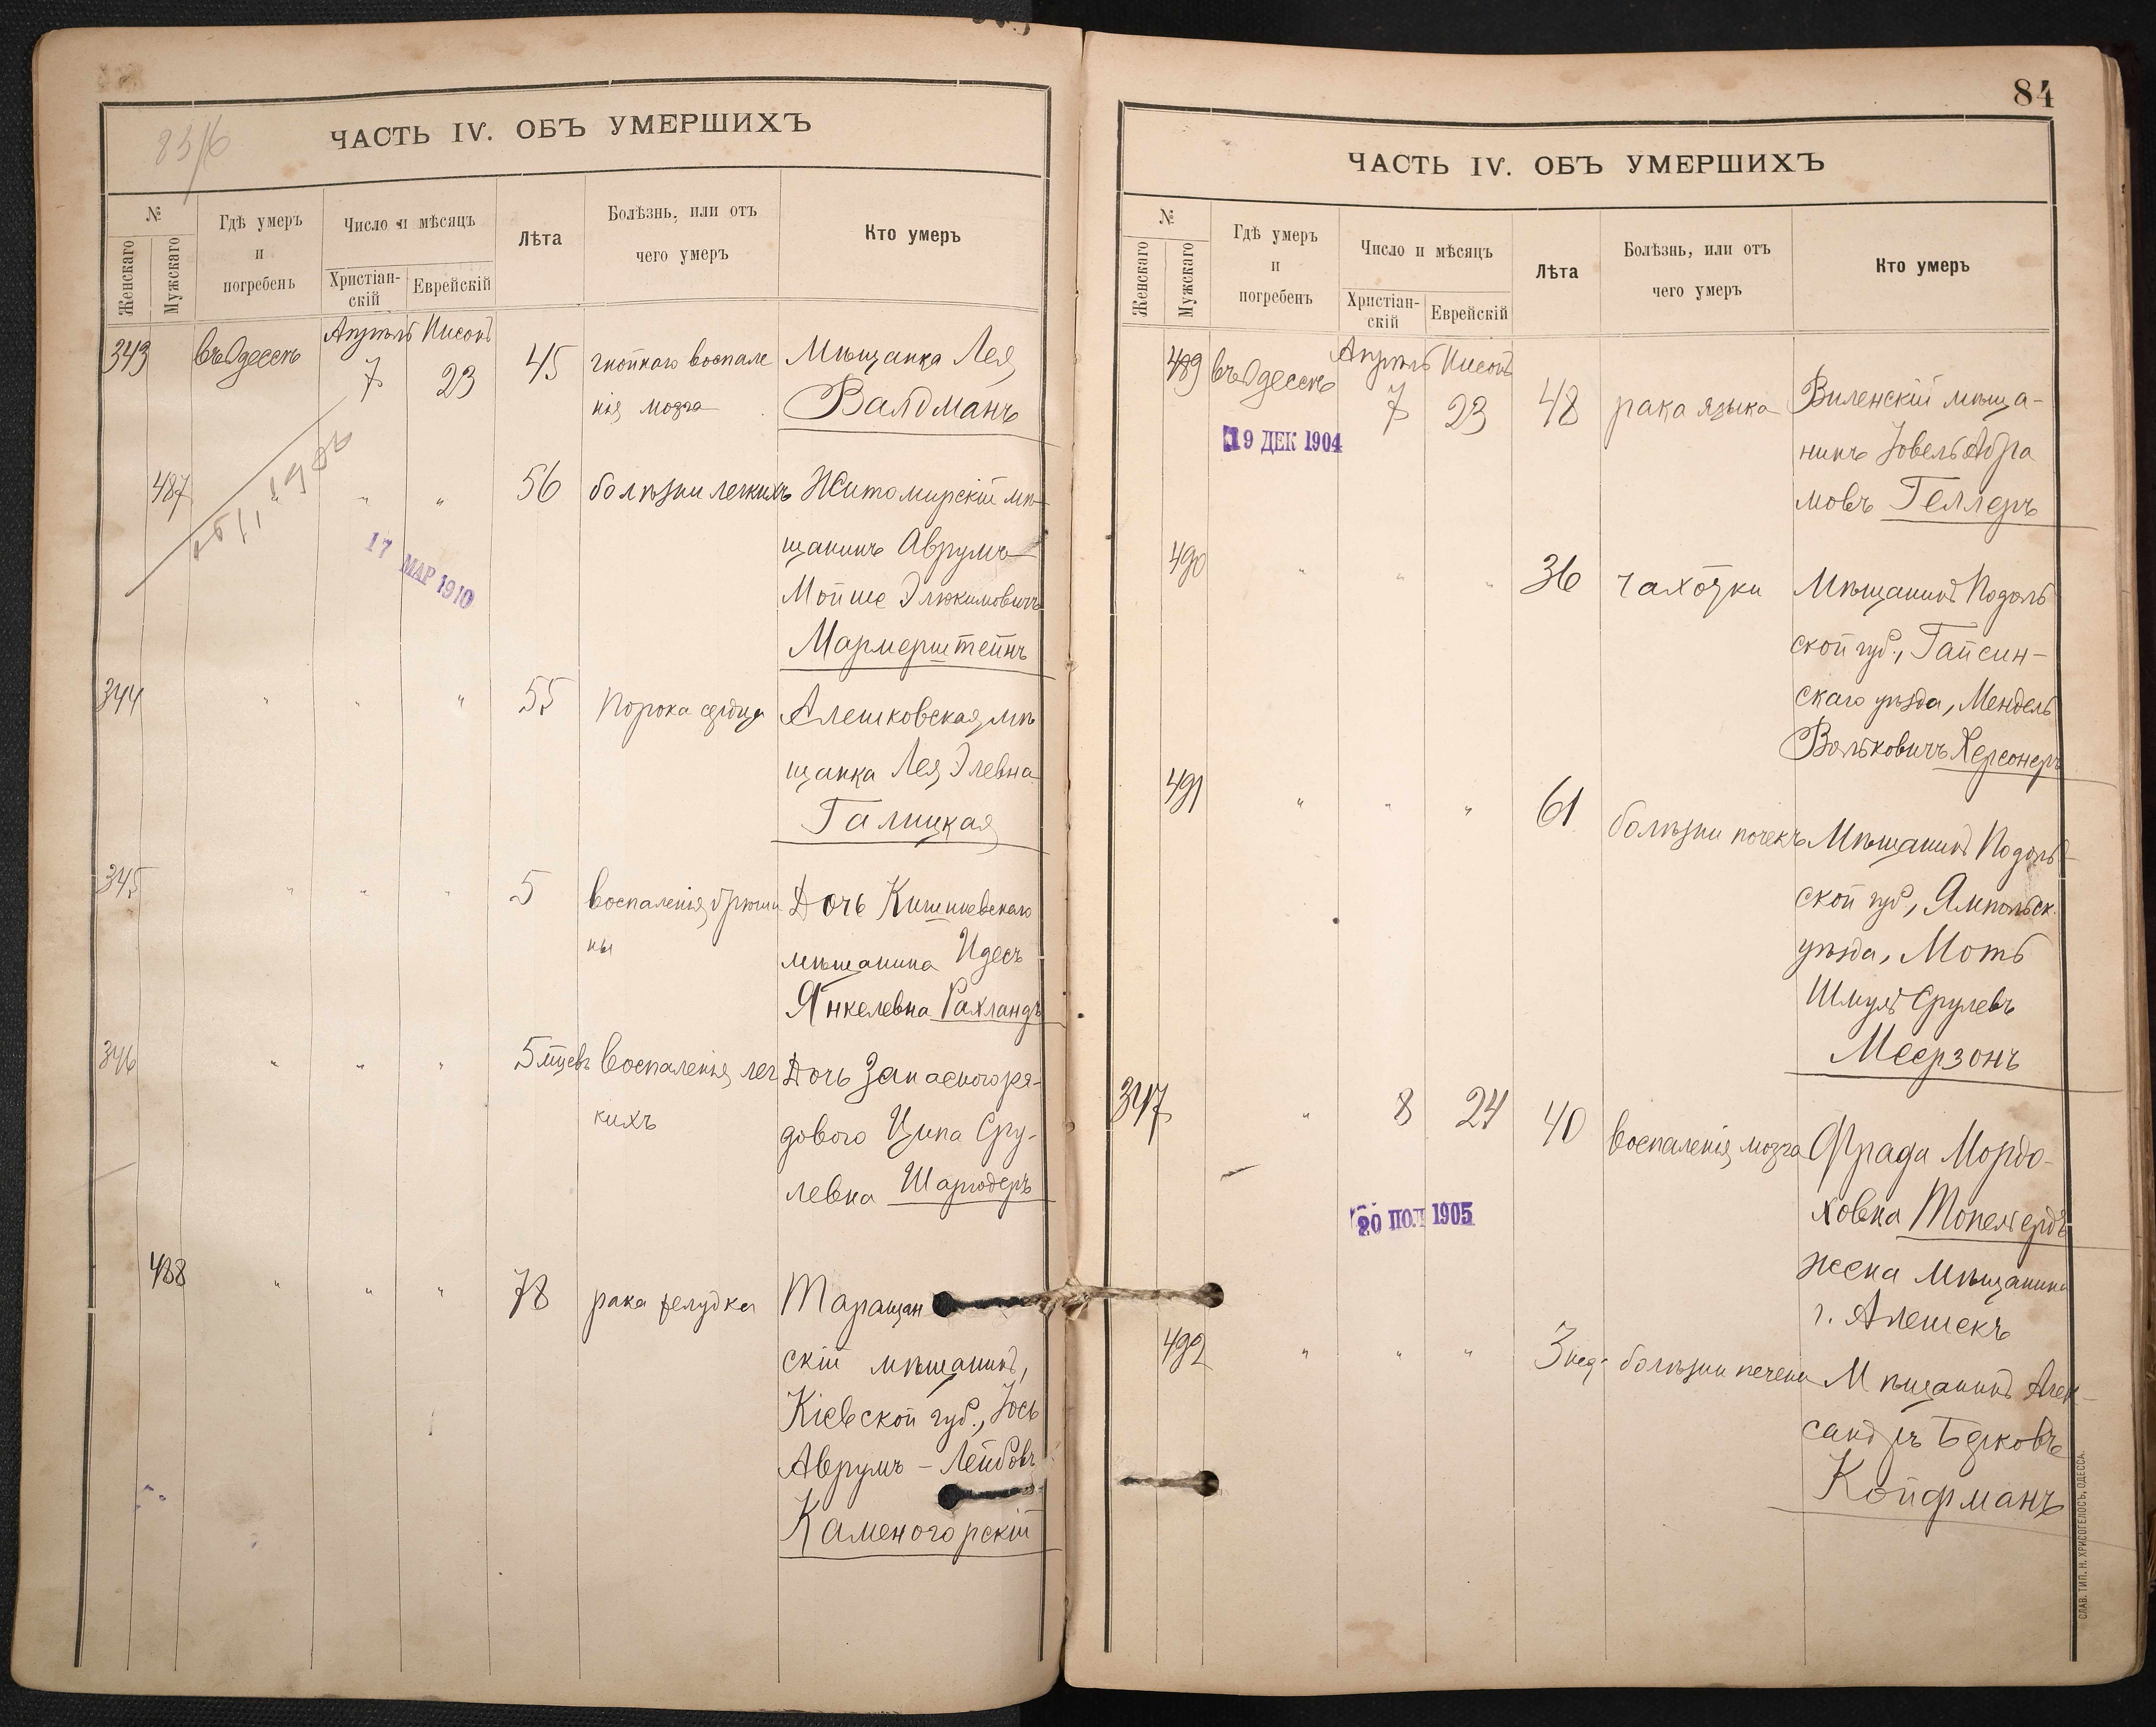 ЧАСТЬ IV. ОБЪ УМЕРШИХЪ
№
Женскаго
Мужскаго
Гдѣ умеръ
и
погребенъ
Число и мѣсяцъ
Христіан-
скій
Еврейскій
Лѣта
Болѣзнь, или отъ
чего умеръ
Кто умеръ
Апрѣль Нисонъ
343 въ Одессѣ 7 23 45 гнойнаго воспале Мѣщанка Лея
нія мозга Валдманъ
487 " " " 56 болѣзни легкихъ Житомирскій мѣ
щанинъ Аврумъ
17 МАР 1910
Мойше Элюкимовичъ
Мармерштейнъ
344 " " " 55 порока сердца Алешковская мѣ
щанка Лея Элевна
Галицкая
345 " " " 5 воспаленія брюши Дочь Кишиневскаго
ны мѣщанина Идесъ
Янкелевна Рахландъ
346 " " " 5 мѣсцевъ воспаленія лег Дочь Запасного ря-
кихъ дового Ципа Сру-
левна Шаргодеръ
488 " " " 78 рака желудка Таращан
скій мѣщанинъ,
Кіевской губ., Іось
Аврумъ-Лейбовъ
Каменогорскій
84
ЧАСТЬ IV. ОБЪ УМЕРШИХЪ
№
Женскаго
Мужскаго
Гдѣ умеръ
и
погребенъ
Число и мѣсяцъ
Христіан-
скій
Еврейскій
Лѣта
Болѣзнь, или отъ
чего умеръ
Кто умеръ
Апрѣль Нисонъ
489 въ Одессѣ 7 23 48 рака языка Виленскій мѣща-
19 ДЕК 1904
нинъ Іовель Абра
мовъ Геллеръ
490 " " " 36 чахотки Мѣщанинъ Подоль
ской губ., Гайсин-
скаго уѣзда, Мендель
Вольковичъ Херсонеръ
491 " " " 61 болѣзни почекъ Мѣщанинъ Подоль-
ской губ., Ямпольск.
уѣзда, Моть
Шмуль Срулевъ
Меерзонъ
347 " 8 24 40 воспаленія мозга Фрада Мордо-
ховна Топельбердъ
жена мѣщанина
г. Алешекъ
492 " " " 3 нед. болѣзни печени Мѣщанинъ Алек-
сандръ Берковъ
Койфманъ
СЛАВ. ТИП. Н. ХРИСОГЕЛОСЪ, ОДЕССА.